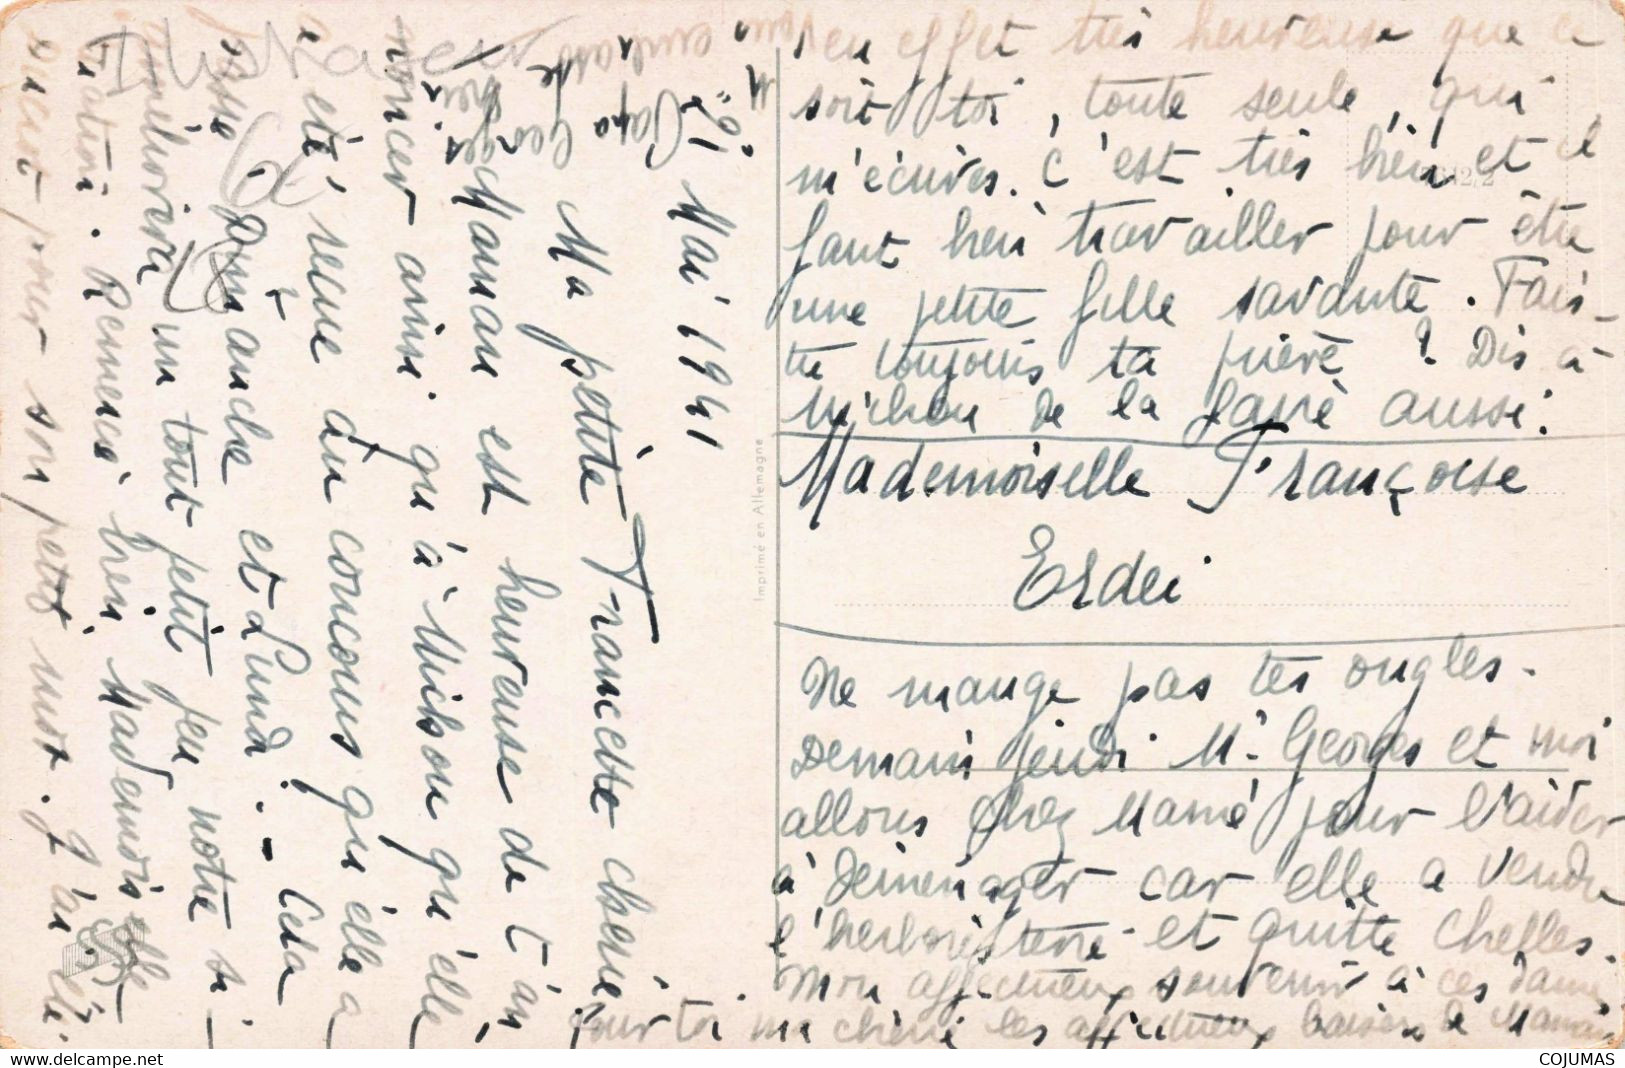 21 Mai 1941
Ma petite Francette chérie,
Maman est heureuse de t'an
noncer ainsi qu'à Michou qu'elle
a été reçue au concours qu'elle a
passé Dimanche et Lundi. - Cela
améliorera un tout petit peu notre si-
tuation. Remercie bien Mademoiselle
Sucert pour son petit mot. J'ai été
en effet très heureuse que ce
soit toi, toute seule, qui
m'écrives. C'est très bien et il
faut bien travailler pour être
une petite fille savante. Fais-
tu toujours ta prière ? Dis à
Michou de la faire aussi.
Mademoiselle Françoise
Erdei
Ne mange pas tes ongles.
Demain jeudi Mr Georges et moi
allons chez Mamé pour l'aider
à déménager car elle a vendu
l'herboristerie et quitte Chelles.
Mon affectueux souvenir à ces dames
Pour toi ma chérie les affectueux baisers de Maman
Papa Georges
vous embrasse
bien
Illustrateur
Imprimé en Allemagne
COJUMAS
www.delcampe.net